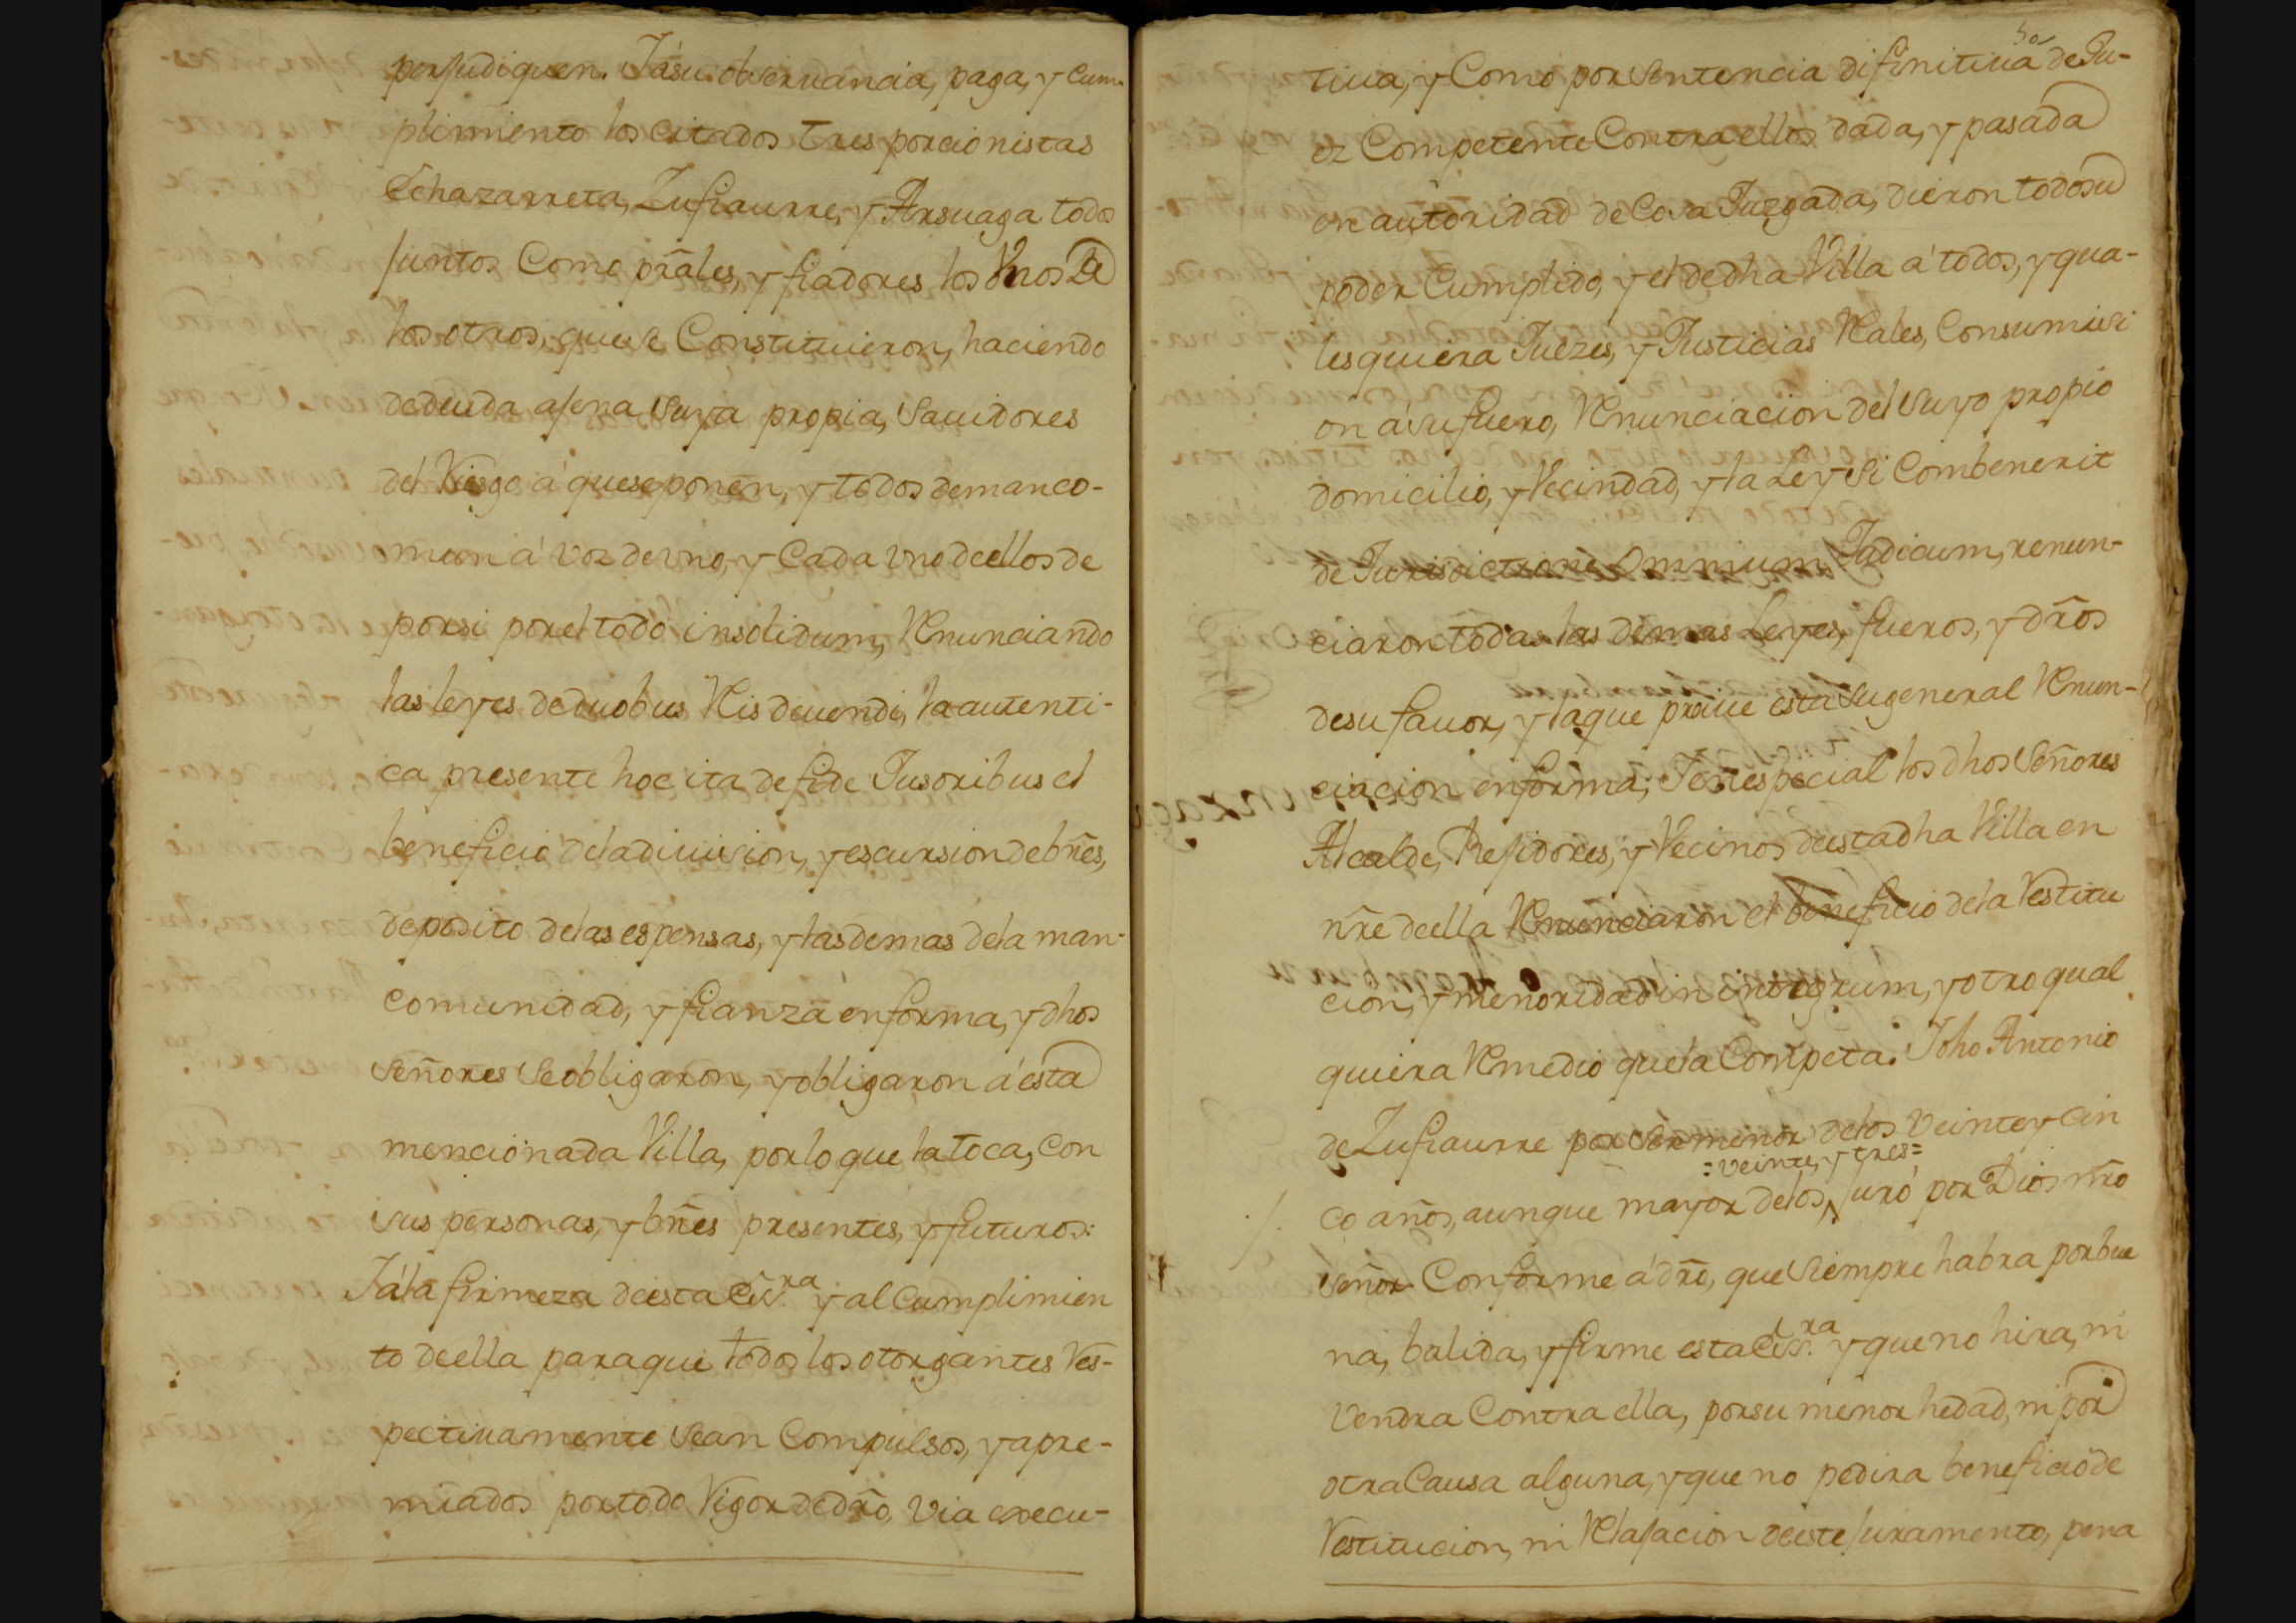 perjudiquen. Y á su observancia, paga, y cum-
plimiento los citados tres porcionistas
Echazarreta, Zufiaurre, y Arsuaga todos
juntos Como prãles, y fiadores los Vnos De
los otros, que se Constituieron, haciendo
de deuda ajena Suya propia, Sauidores
del Riesgo á que se ponen, y todos de manco-
mun á voz de vno, y Cada vno de ellos de
por si por el todo insolidum, Renunciando
las leyes de duobus Reis deuendi, la autenti-
ca presente hoc ita de fide Jusoribus el
beneficio de la diuision, y escursion de bñes,
deposito de las espensas, y las demas de la man-
comunidad, y fianza en forma, y dhos
Señores Se obligaron, y obligaron á esta
mencionada Villa, por lo que la toca, Con
sus personas, y bñes presentes, y futuros:
Y á la firmeza de esta Ess.ra y al Cumplimien
to de ella para que todos los otorgantes Res-
pectiuamente Sean Compulsos, y apre-
miados por todo Rigor de dro, via execu-
tiua, y Como por Sentencia difinitiua de Ju-
ez Competente Contra ellos dada, y pasada
en autoridad de Cosa Juzgada, dieron todo su
poder Cumplido, y el de dha Villa á todos, y qua-
lesquiera Juezes, y Justicias Reales, Consumisi
on á su fuero, Renunciacion del Suyo propio
domicilio, y Vecindad, y la Ley Si Combenerit
de Jurisdictione Omnium Judicum, renun-
ciaron todas las demas Leyes, fueros, y drõs
de su fauor, y la que proiue esta Su general Renun-
ciacion en forma; Y en especial los dhos Señores
Alcalde, Rejidores, y Vecinos de esta dha Villa en
nrẽ de ella Renunciaron el beneficio de la Restitu
cion, y menoridad in integrum, y otro qual
quiera Remedio que la Competa. Y dho Antonio
de Zufiaurre por Ser menor de los veinte y cin
=veinte, y tres=
co años, aunque mayor de los, juró por Dios nrõ
Señor Conforme á drõ, que Siempre habra por bue
na, balida, y firme esta Ess.ra y que no hira, ni
vendra Contra ella, por su menor hedad, ni por
otra Causa alguna, y que no pedira beneficio de
Restitucion, ni Relajacion de este juramento, pena